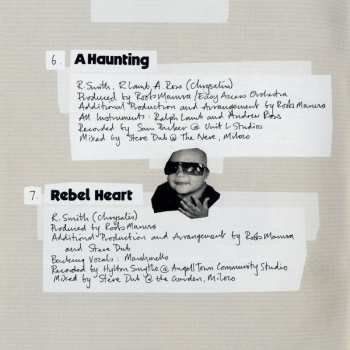 6. A Haunting
R. Smith, R Lamb, A. Ross (Chrysalis)
Produced by Roots Manuva / Easy Access Orchestra
Additional Production and Arrangement by Roots Manuva
All Instruments: Ralph Lamb and Andrew Ross
Recorded by Sam @ Unit L Studios
Mixed by Steve Dub @ The Neve, Miloco
7. Rebel Heart
R. Smith (Chrysalis)
Produced by Roots Manuva
Additional Production and Arrangement by Roots Manuva
and Steve Dub
Backing Vocals:
Recorded by Hylton Smythe @ Angell Town Community Studio
Mixed by Steve Dub @ the Garden, Miloco